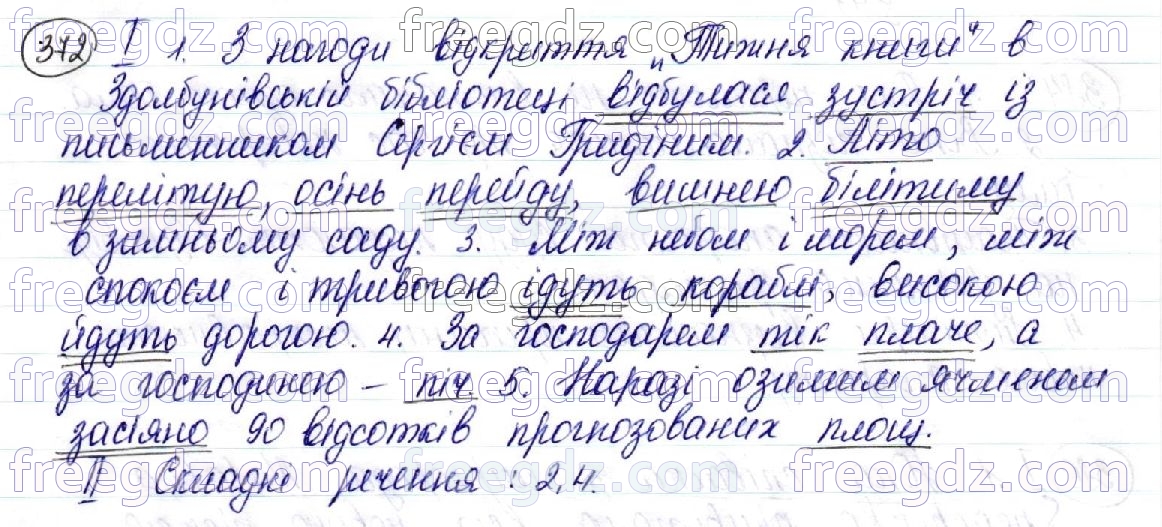 372 I 1. З нагоди відкриття „Тижня книги" в
Здолбунівській бібліотеці відбулася зустріч із
письменником Сергієм Гридіним. 2. Літо
перелітую, осінь перейду, вишнею білітиму
в зимньому саду. 3. Між небом і морем, між
спокоєм і тривогою ідуть кораблі, високою
йдуть дорогою. 4. За господарем тік плаче, а
за господинею – піч. 5. Наразі озимим ячменем
засіяно 90 відсотків прогнозованих площ.
II Складні речення: 2,4.